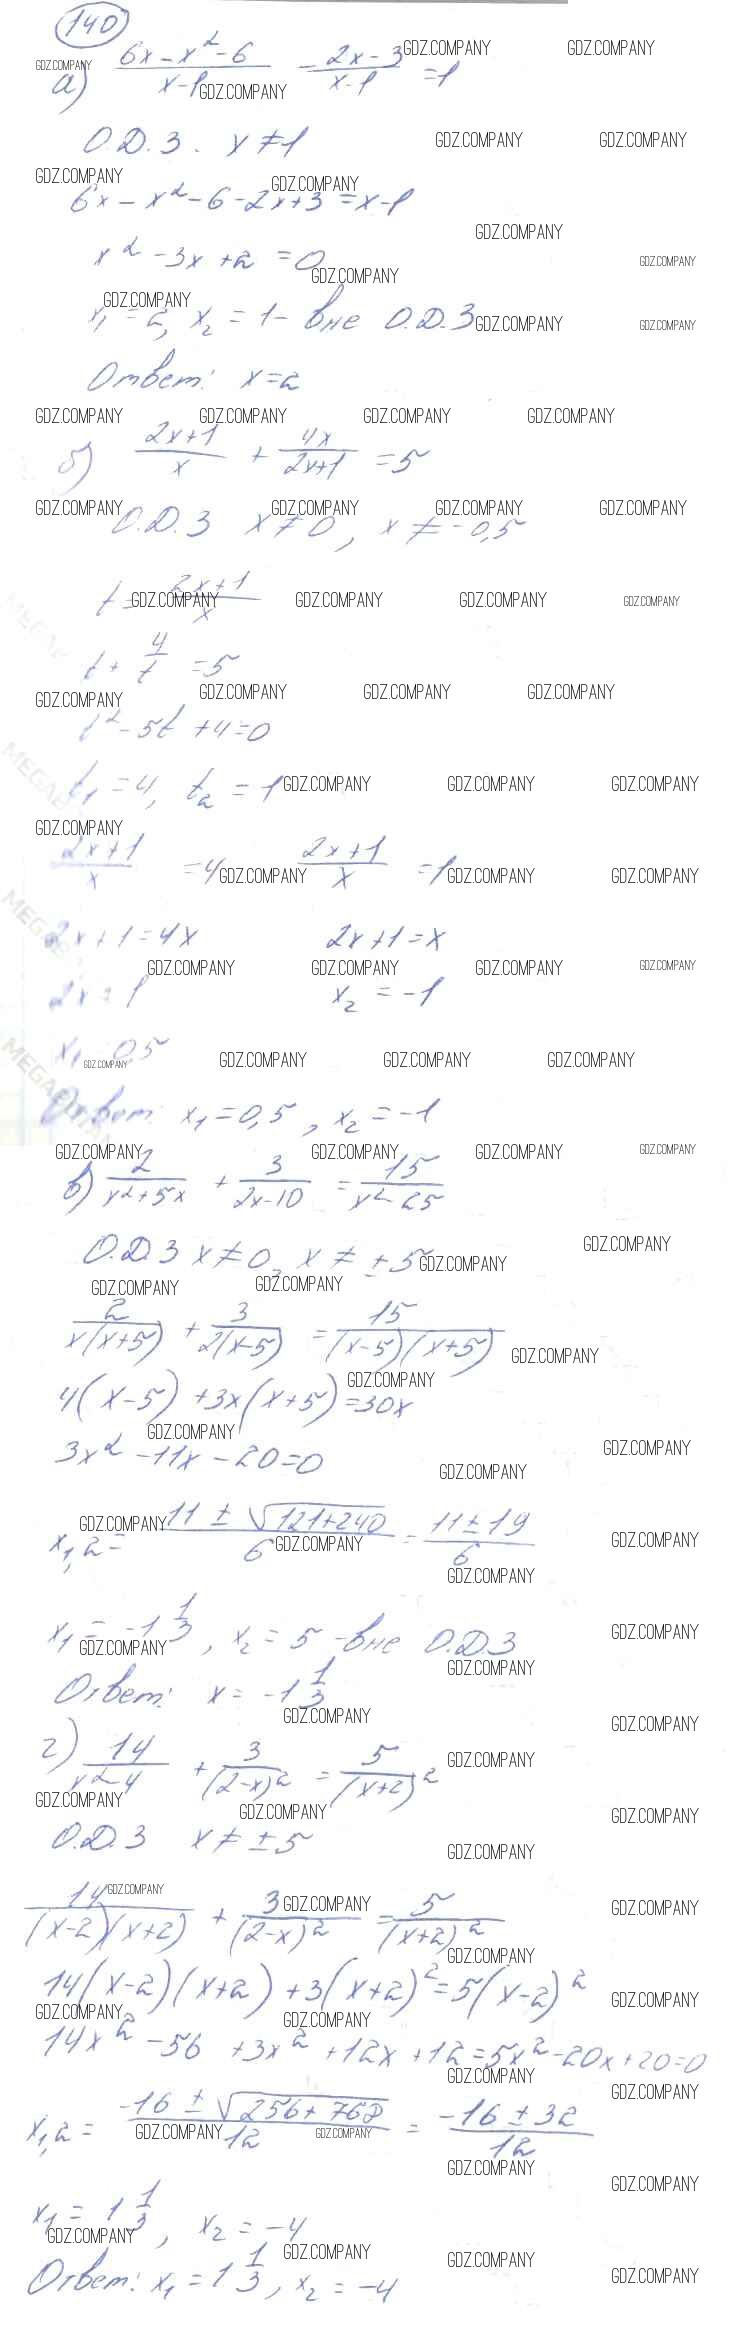 140
а) (6x - x² - 6)/(x-1) - (2x-3)/(x-1) = 1
О.Д.З. x ≠ 1
6x - x² - 6 - 2x + 3 = x - 1
x² - 3x + 2 = 0
x₁ = 2, x₂ = 1 - вне О.Д.З
Ответ: x = 2
б) (2x+1)/x + 4x/(2x+1) = 5
О.Д.З x ≠ 0, x ≠ -0,5
t = (2x+1)/x
t + 4/t = 5
t² - 5t + 4 = 0
t₁ = 4, t₂ = 1
(2x+1)/x = 4 (2x+1)/x = 1
2x + 1 = 4x 2x + 1 = x
2x = 1 x₂ = -1
x₁ = 0,5
Ответ: x₁ = 0,5, x₂ = -1
в) 2/(x²+5x) + 3/(2x-10) = 15/(x²-25)
О.Д.З x ≠ 0, x ≠ ±5
2/(x(x+5)) + 3/(2(x-5)) = 15/((x-5)(x+5))
4(x-5) + 3x(x+5) = 30x
3x² - 11x - 20 = 0
x₁,₂ = (11 ± √(121+240))/6 = (11 ± 19)/6
x₁ = -1 1/3, x₂ = 5 - вне О.Д.З
Ответ: x = -1 1/3
г) 14/(x²-4) + 3/(2-x)² = 5/(x+2)²
О.Д.З x ≠ ±5
14/((x-2)(x+2)) + 3/(2-x)² = 5/(x+2)²
14(x-2)(x+2) + 3(x+2)² = 5(x-2)²
14x² - 56 + 3x² + 12x + 12 = 5x² - 20x + 20 = 0
x₁,₂ = (-16 ± √(256+768))/12 = (-16 ± 32)/12
x₁ = 1 1/3, x₂ = -4
Ответ: x₁ = 1 1/3, x₂ = -4
GDZ.COMPANY